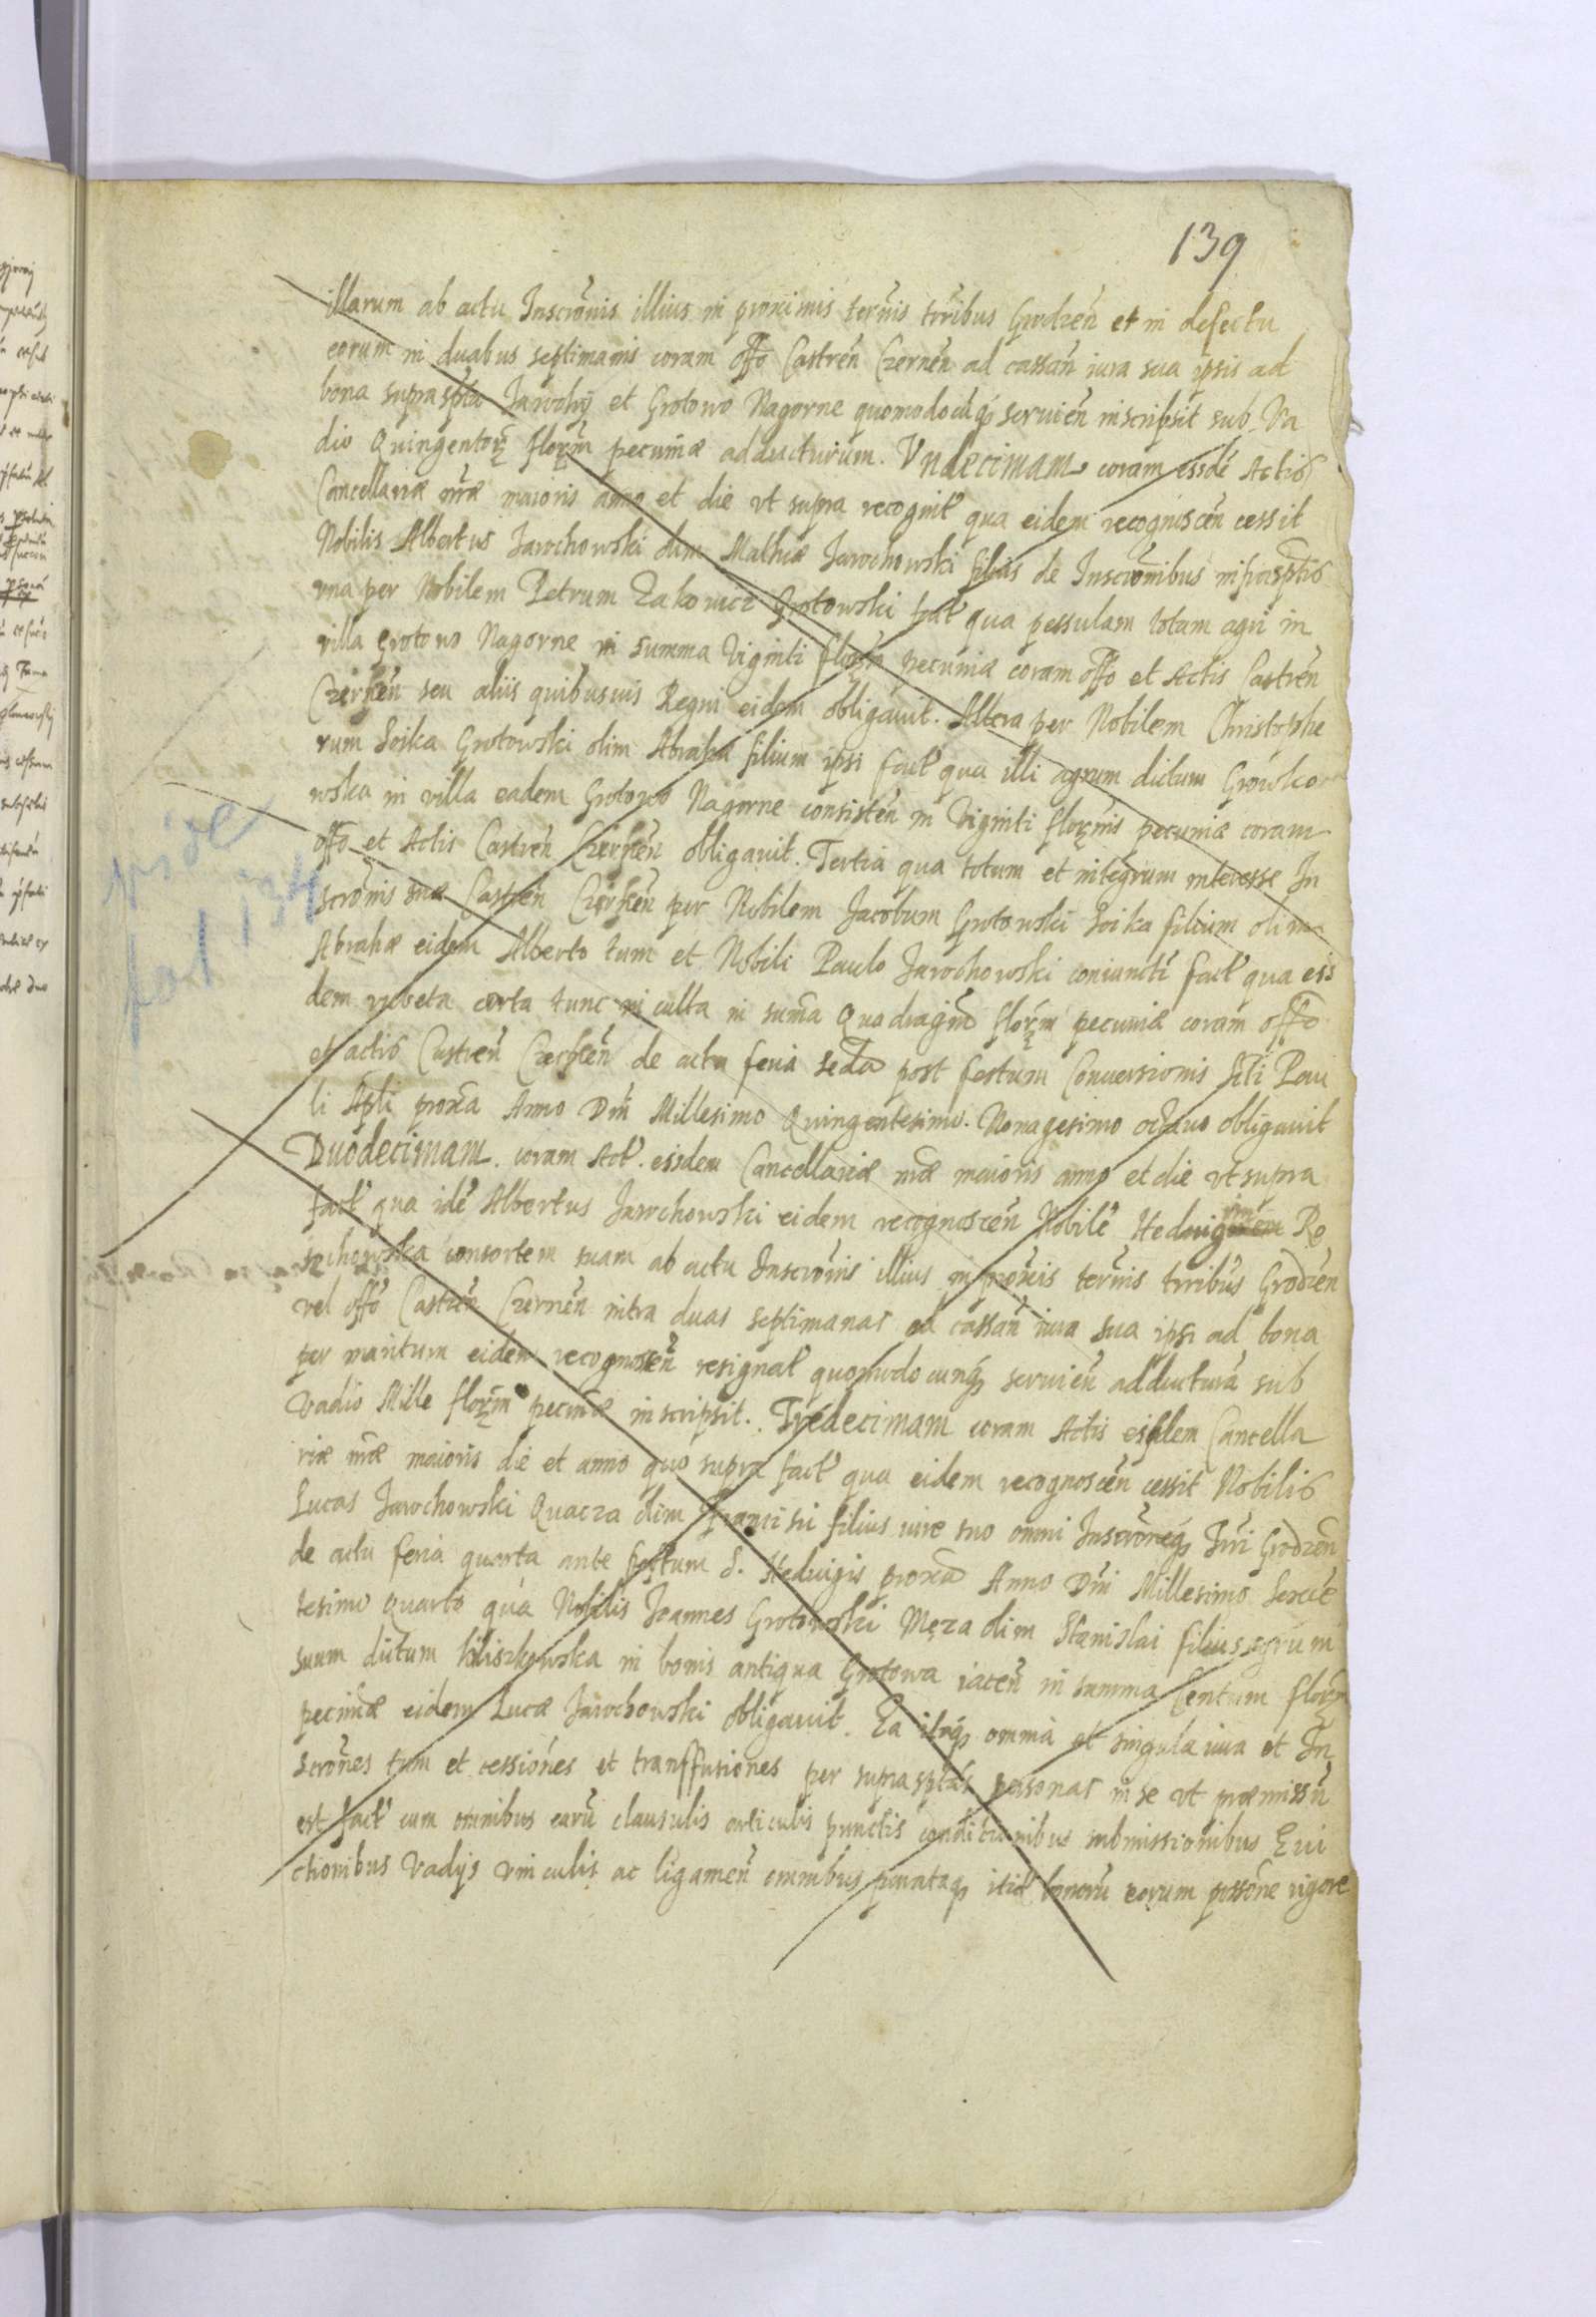 139
illarum ab actu Inscrōnis illius in proximis termis trribus Grodzeñ et in defectu
eorum in duabus septimanis coram offo Castreñ Czerneñ ad cassañ iura sua ipsis ad
bona suprasptã Jarochÿ et Grotowo Nagorne quomodocūqꝫ seruieñ inscripsit sub Va
dio Quingentorꝝ florꝝm pecuniæ adducturum. Vndecimam coram eisdē Actis
Cancellariæ nrã maioris anno et die vt supra recognit' qua eidem recognoscēn cessit
Nobilis Albertus Jarochowski olim Mathiæ Jarochowski filius de Inscrōnibus infrasptis
vna per Nobilem Petrum Zakowicz Grotowski fact' qua pessulam totam agri in
villa Grotowo Nagorne in summa Viginti florꝝm pecuniæ coram offo et Actis Castreñ
Czerneñ seu aliis quibusuis Regni eidem obligauit. Altera per Nobilem Christophe
rum Soika Grotowski olim Abrahæ filium ipsi fact' qua illi agrum dictum Growko
wska in villa eadem Grotowo Nagorne consisteñ in Viginti florenis pecuniæ coram
offo et Actis Castreñ Czerneñ obligauit. Tertia qua totum et integrum interesse In
scrōnis suæ Castreñ Czerneñ per Nobilem Jacobum Grotowski Soika filium olim
Abrahæ eidem Alberto tum et Nobili Paulo Jarochowski coniunctī fact' qua eis
dem rubeta certa tunc in culta in sum̃a Quadragin̄ florꝝm pecuniæ coram offo
et actis Castreñ Czerneñ de actu feria secda post festum Conuersionis Scti Pau
li Apli proxa Anno Dni Millesimo Quingentesimo Nonagesimo octauo obligauit
Duodecimam coram Act' eisdem Cancellariæ nrã maioris anno et die vt supra
fact' qua idē Albertus Jarochowski eidem recognoscēn Nobilē Heduigim Ro
sochowska consortem suam ab actu Inscrōnis illius in proxis termis trribus Grodzeñ
vel offo Castreñ Czerneñ intra duas septimanas ad cassañ iura sua ipsi ad bona
per maritum eidem recognosceñ resignat' quomodocunqꝫ seruieñ adducturã sub
Vadio Mille florꝝm pecuniæ inscripsit. Tredecimam coram Actis eisdem Cancella
riæ nrã maioris die et anno quo supra fact' qua eidem recognosceñ cessit Nobilis
Lucas Jarochowski Quacza olim Francisci filius iure suo omni Inscrōneqꝫ Trri Grodzeñ
de actu feria quarta ante festum S. Heduigis proxa Anno Dni Millesimo Sexcē
tesimo quarto qua Nobilis Joannes Grotowski Męza olim Stanislai filius agrum
suum dictum Kliszkowska in bonis antiqua Grotowa iaceñ in summa Centum florꝝm
pecuniæ eidem Lucæ Jarochowski obligauit. Ea itaqꝫ omnia et singula iura et In
scrōnes tum et cessiones et transfusiones per suprasptas personas in se vt præmissū
est fact' cum omnibus earū clausulis articulis punctis conditionibus submissionibus Eui
ctionibus Vadijs vinculis ac ligameñ omnibus paratqꝫ itid' bonorū eorum possōne vigore
vide
fol 134